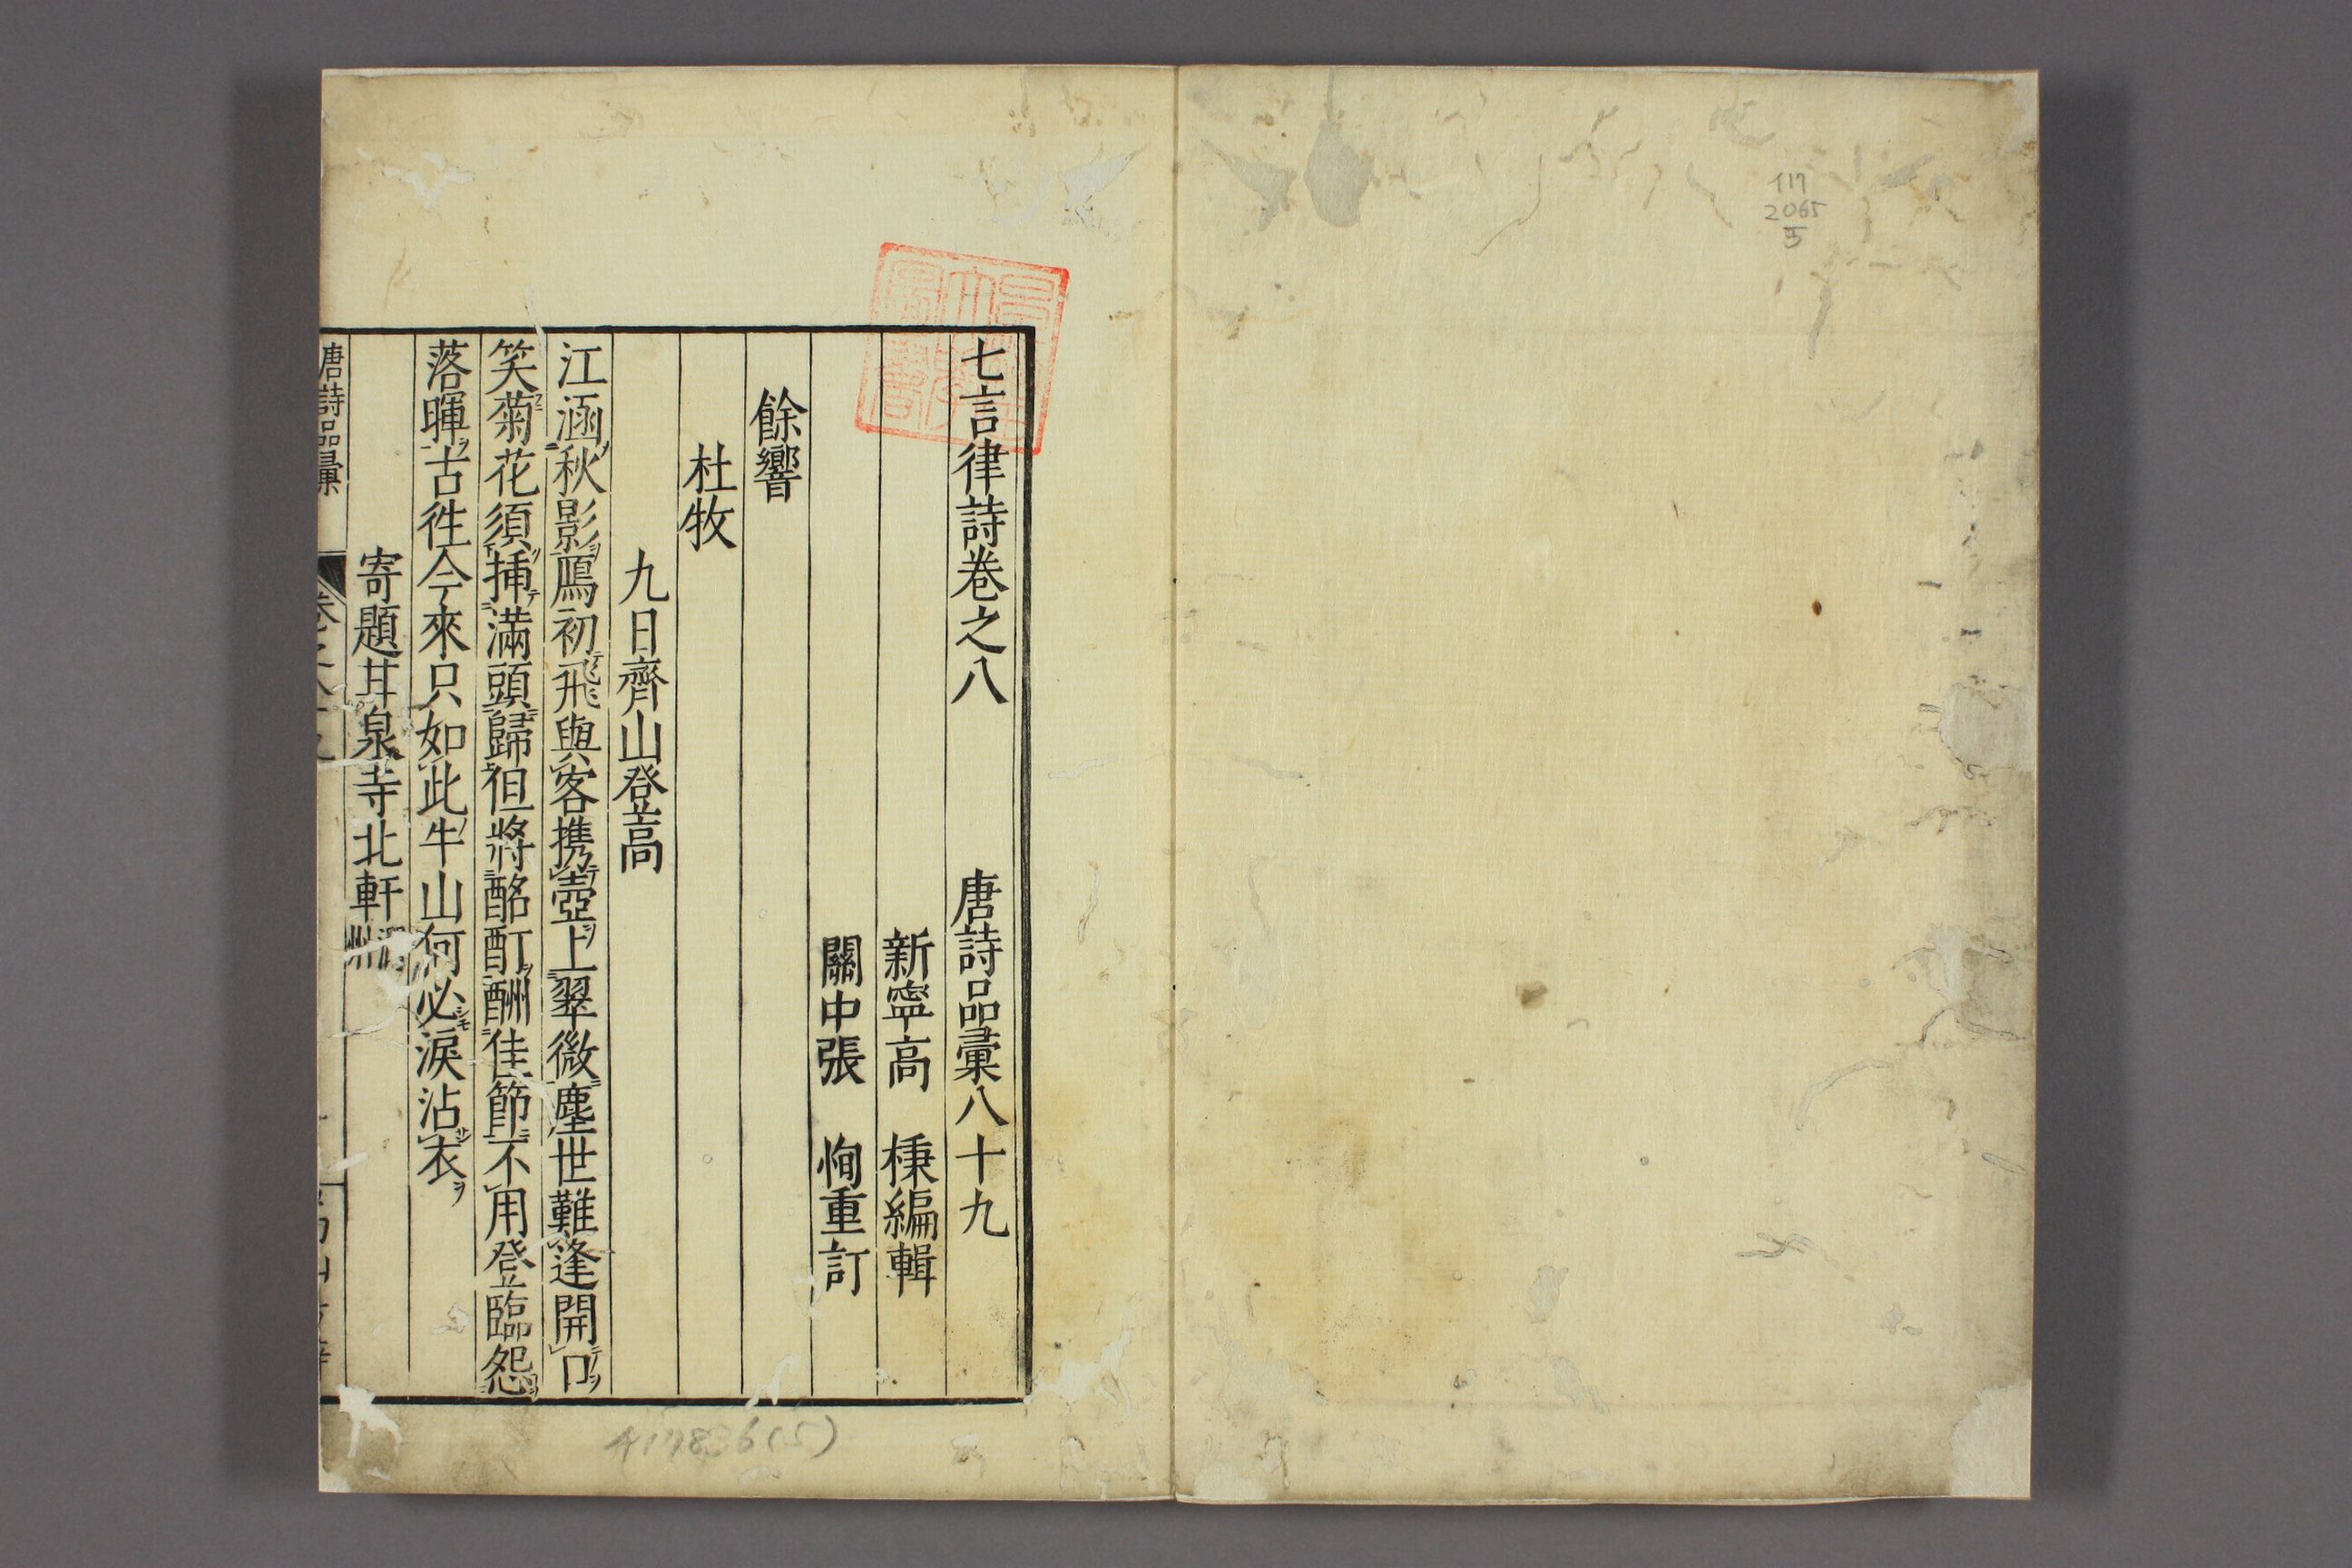 117
2065
5
七言律詩卷之八 唐詩品彙八十九
新寧高 棅編輯
關中張 恂重訂
餘響
杜牧
九日齊山登高
江涵秋影鴈初飛與客携壺上翠微塵世難逢開口
笑菊花須揷滿頭歸但將酩酊酬佳節不用登臨怨
落暉古往今來只如此牛山何必淚沾衣
寄題甘泉寺北軒
唐詩品彙
卷之八十九
417836(5)